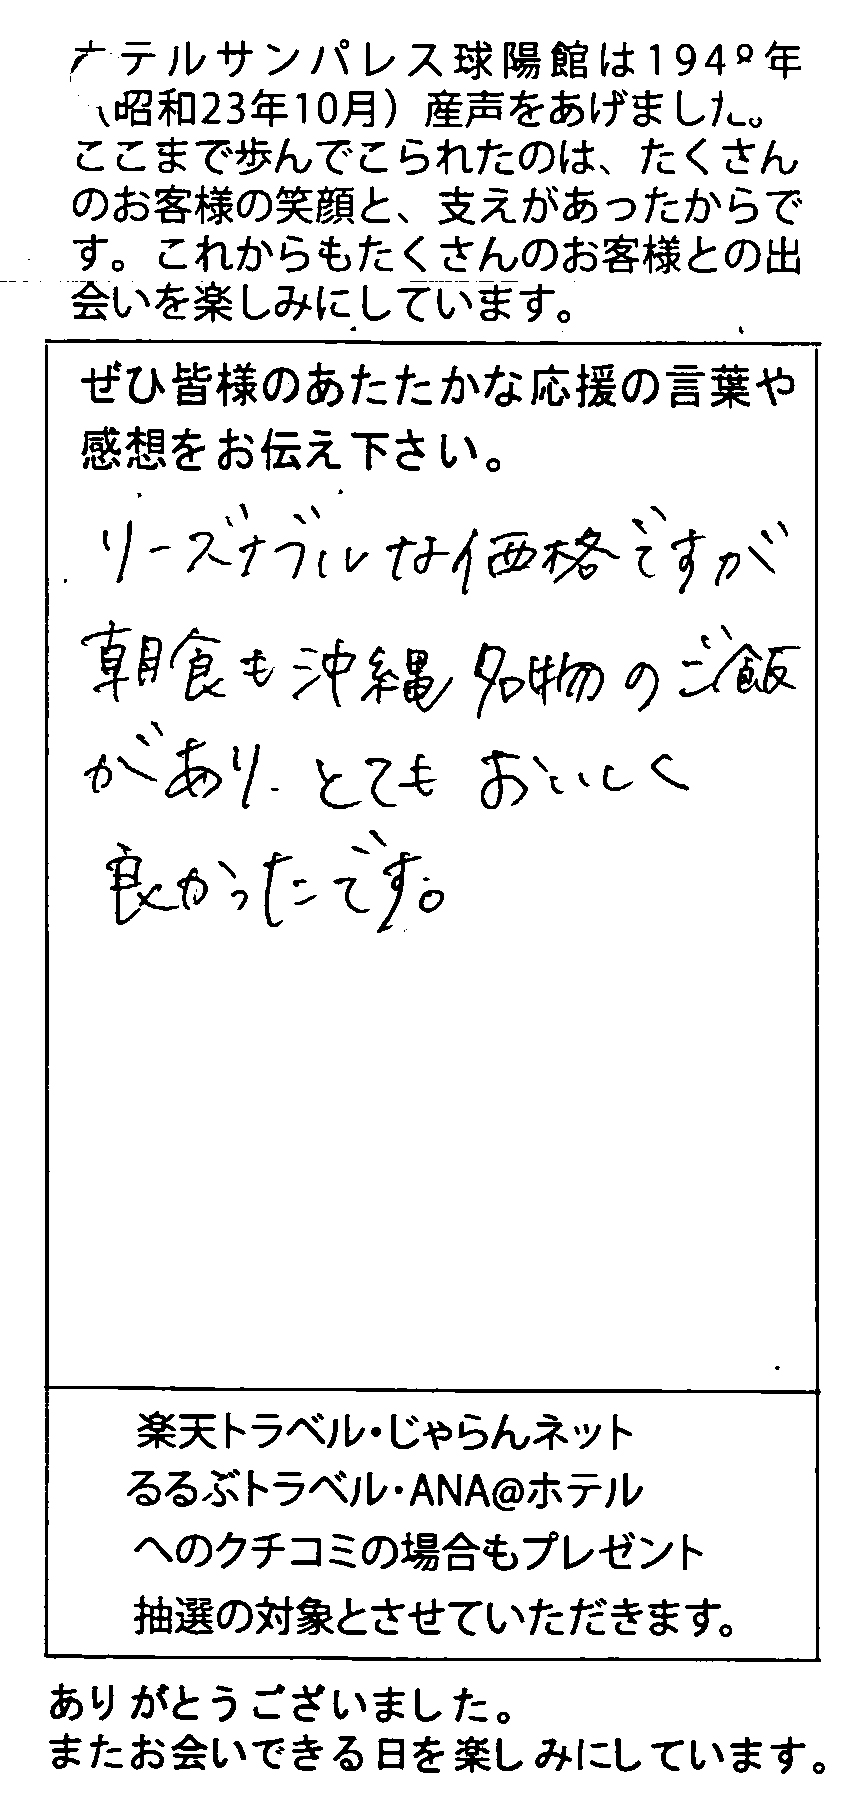 ホテルサンパレス球陽館は1948年
（昭和23年10月）産声をあげました。
ここまで歩んでこられたのは、たくさん
のお客様の笑顔と、支えがあったからで
す。これからもたくさんのお客様との出
会いを楽しみにしています。
ぜひ皆様のあたたかな応援の言葉や
感想をお伝え下さい。
リーズナブルな価格ですが
朝食も沖縄名物のご飯
があり、とてもおいしく
良かったです。
楽天トラベル・じゃらんネット
るるぶトラベル・ANA@ホテル
へのクチコミの場合もプレゼント
抽選の対象とさせていただきます。
ありがとうございました。
またお会いできる日を楽しみにしています。